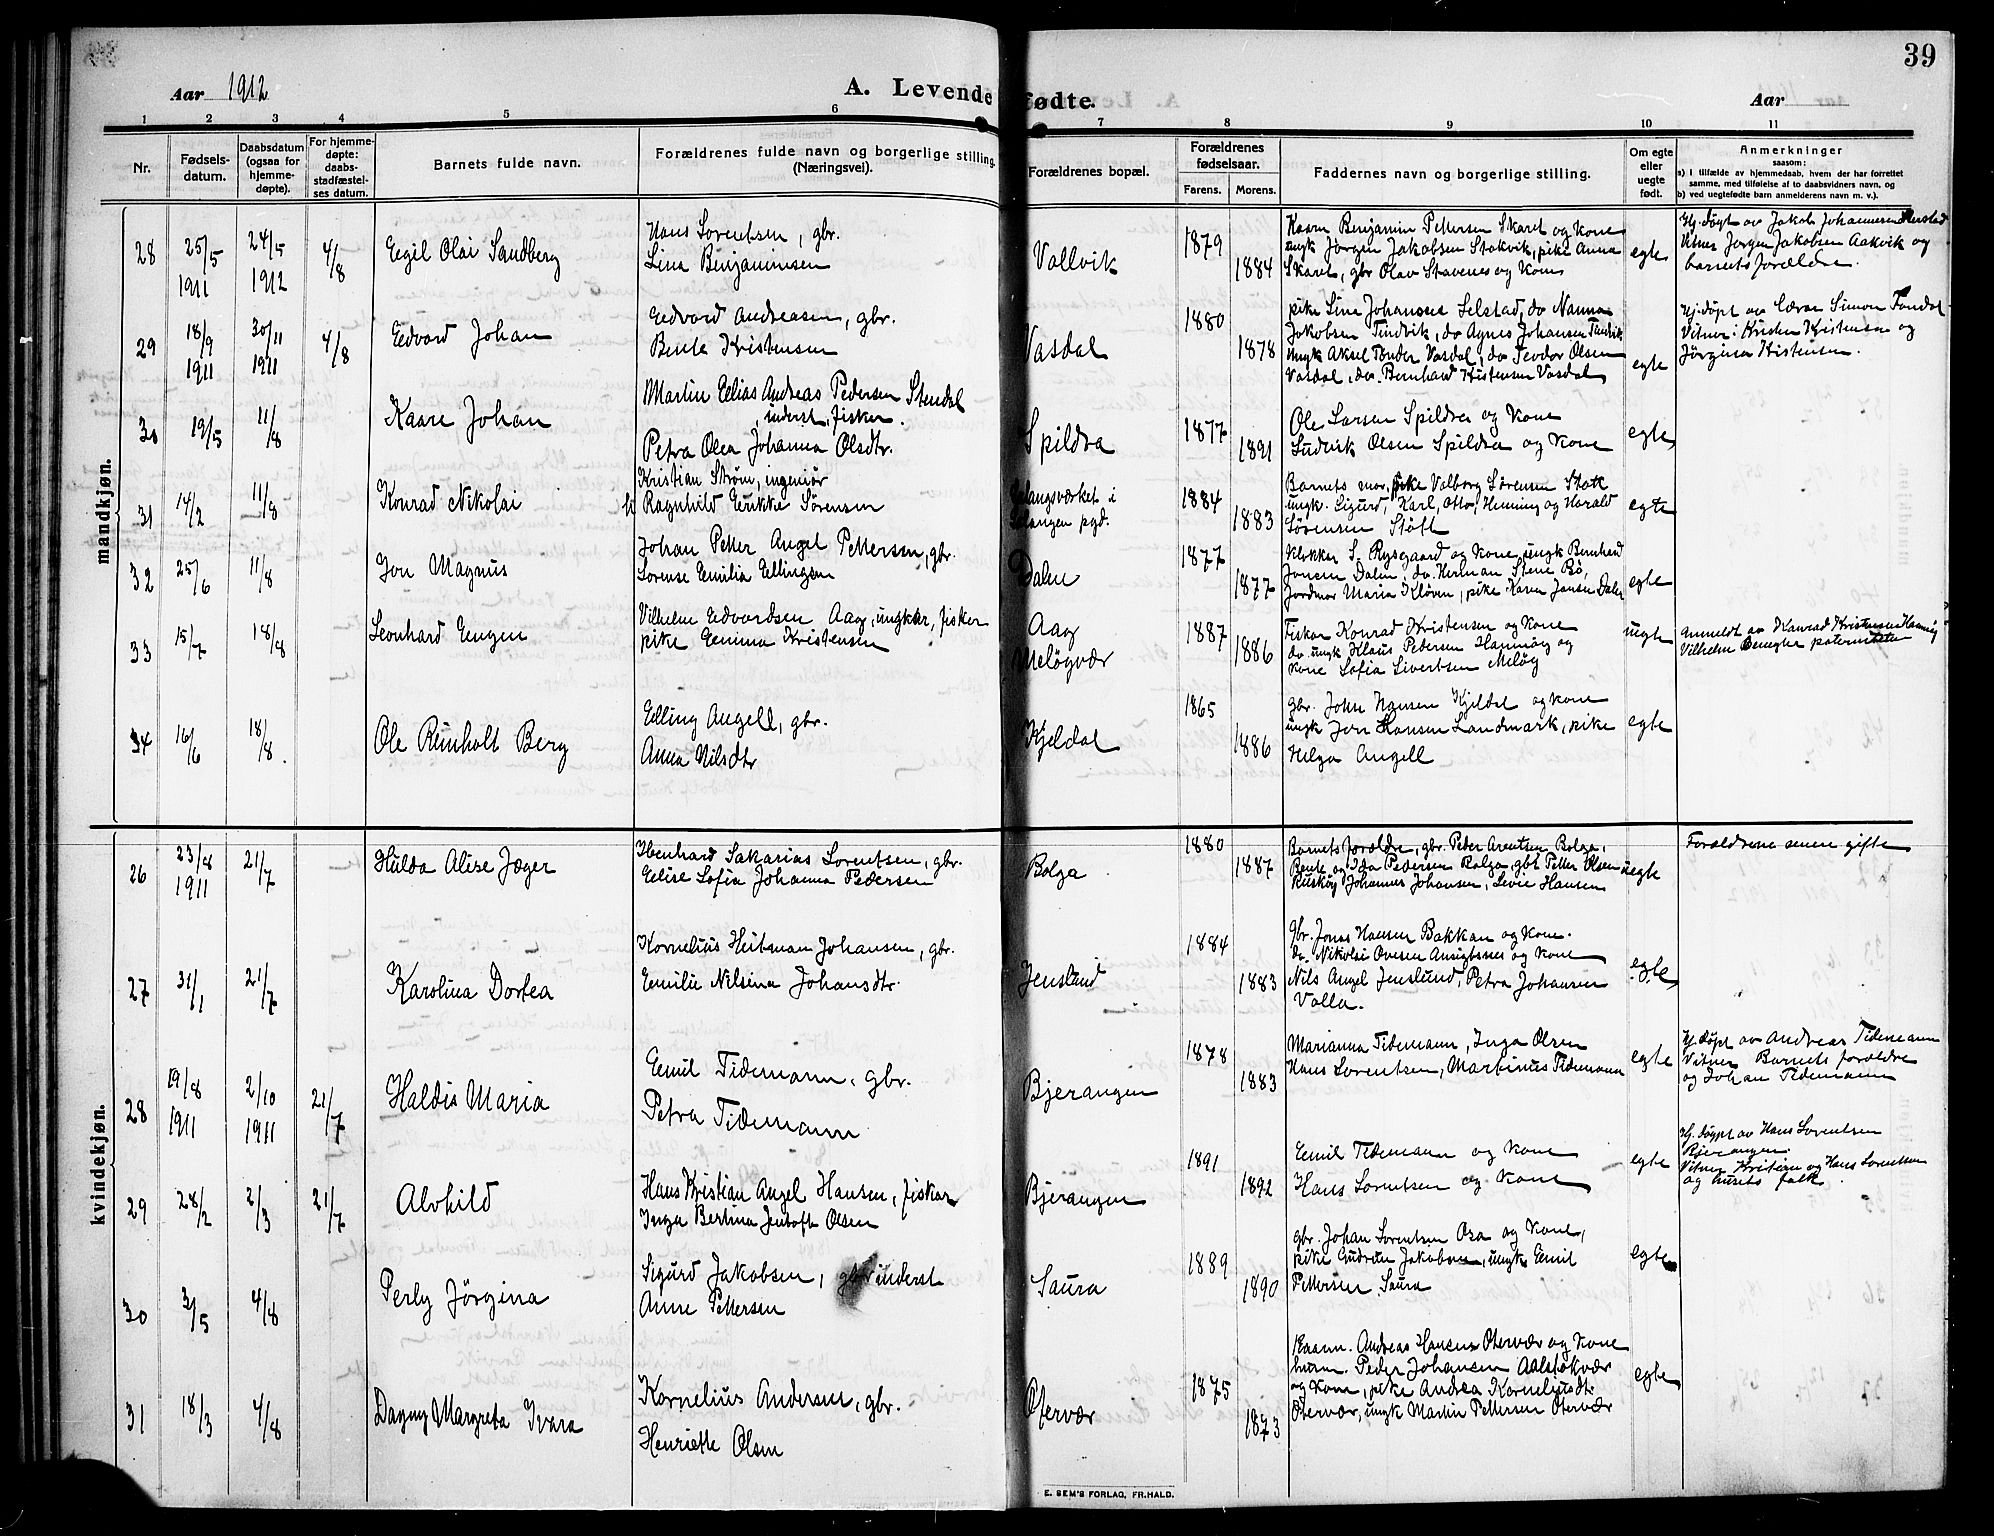 39
Aar 1912
A. Levende fødte.
Aar
1 2 3 4 5 6 7 8 9 10 11
Nr.
Fødsels-
datum.
Daabsdatum
(ogsaa for
hjemme-
døpte).
For hjemme-
døpte:
daabs-
stadfæstel-
ses datum.
Barnets fulde navn.
Forældrenes fulde navn og borgerlige stilling.
(Næringsvei).
Forældrenes bopæl.
Forældrenes
fødselsaar.
Farens. Morens.
Faddernes navn og borgerlige stilling.
Om egte
eller
uegte
født.
Anmerkninger
saasom:
a) I tilfælde av hjemmedaab, hvem der har forrettet
samme, med tilføielse af to daabsvidners navn, og
b) ved uegtefødte barn anmelderens navn m. v.).
mandkjøn.
28
25/5
1911
24/5
1912
4/8
Egil Olai Sandberg
Hans Lorentsen, gbr.
Lina Benjaminsen
Vallvik
1879
1884
Kaarm Benjamin Pettersen Skaret og kone
ungk Jørgen Jakobsen Stokvik, pike Anna
Skaret, gbr Olav Stavenes og kone
egte
Hj. døpt av Jakob Johannesen
Vitner Jørgen Jakobsen Aakvik og
barnets forældre.
29
18/9
1911
30/11
1911
4/8
Edvard Johan
Edvard Andreasen, gbr.
Berita Kristensen
Vasdal
1880
1878
pike Lina Johanses Selstad, do Nanna
Jakobsen Tindvik, do Agnes Johansen Tindvik
ungk Aksel Tønder Vasdal, do Teodor Olsen
Vasdal, do. Bernhard Kristensen Vasdal
egte
Hj. døpt av Lærer Simon
Vitner: Kristen Kristensen og
Jørgina Kristensen.
30
19/5
11/8
Kaare Johan
Martin Elias Andreas Pedersen Stendal
inderst, fisker.
Petra Olea Johanna Olsdtr.
Spildra
1877
1891
Ole Larsen Spildra og kone
Ludvik Olsen Spildra og kone
egte
31
14/2
11/8
Konrad Nikolai
Kristian Strøm, ingeniør
Ragnhild Erikke Sørensen
i
pgd.
1884
1883
Barnets mor, pike Valborg Sørensen Støtt
ungk. Sigurd, Karl, Otto, Henning og Harald
Sørensen Støtt
egte
32
25/6
11/8
Jon Magnus
Johan Petter Angel Pettersen, gbr.
Lorense Emilia Ellingsen
Dalen
1877
1877
Klokker S. Rysgaard og kone, ungk Bernhard
Jensen Dalen, do. Herman Stene Bø,
Jordmor Maria Kløven, pike Karen Jensen Dalen
egte
33
15/7
18/8
Leonhard Engen
Vilhelm Edvardsen Aag, ungkar, fisker
pike Emma Kristensen
Aag
Meløyvær
1887
1886
Fisker Konrad Kristensen og kone
do ungk Klaus Pedersen Havnøy og
kone Sofia Sivertsen Meløy
uegte
Anmeldt av Konrad Kristensen
Vilhelm benegter paterniteten
34
16/6
18/8.
Ole Reinholt Berg
Elling Angell, gbr.
Anna Nilsdtr
Kjeldal
1865
1886
gbr. John Hansen Kjeldal og kone
ungk Jern Hansen Landmark, pike
Helga Angell
egte
kvindekjøn.
26
23/8
1911
21/7
Hulda Alise Jæger
Ibenhard Sakarias Lorentsen, gbr.
Elise Sofia Johanna Pedersen
Bolga
1880
1887
Barnets forældre, gbr. Peder Arentsen Bolga,
Bente og Ida Pedersen Bolga, gbr Petter Olsen
Johannes Johansen, Levie Hansen
uegte
Forældrene senere gifte
27
31/1
21/7
Karolina Dortea
Kornelius Heitman Johansen, gbr.
Emilie Nilsina Johansdtr.
Jenslund
1884
1883
gbr. Jonas Hansen Bakkan og kone.
do. Nikolai Ovesen og kone
Nils Angel Jenslund, Petra Johansen
Valla.
egte
28
19/8
1911
2/10
1911
21/7
Haldis Maria
Emil Tidemann, gbr.
Petra Tidemann
Bjerangen
1878
1883
Marianna Tidemann, Inga Olsen
Hans Lorentsen, Martinus Tidemann
egte
Hj. døpt av Andreas Tidemann
Vitner Barnets forældre
og Johan Tidemann
29
28/2
2/3
21/7
Alvhild
Hans Kristian Angel Hansen, fisker
Inga Bertina Jentoft Olsen
Bjerangen
1891
1892
Emil Tidemann og kone
Hans Lorentsen og kone
egte
Hj. døpt av Hans Lorentsen
Bjerangen
Vitner Kristian og Hans Lorentsen
og husets folk
30
3/5
4/8
Perly Jørgina
Sigurd Jakobsen, inderst
Anne Pettersen
Saura
1889
1890
gbr. Johan Lorentsen Osa og kone,
pike Gudrun Jakobsen, ungk Emil
Pettersen Saura
egte
31
18/3
4/8
Dagny Margreta Ivara
Kornelius Andersen, gbr.
Henriette Olsen
Otervær
1875
1873
Kaarm. Andreas Hansen Otervær og kone
husm. Peder Johansen
og kone, pike Andrea Korneliusdtr.
Otervær, ungk Martin Pettersen Otervær
egte
E. SEM'S FORLAG, FR.HALD.